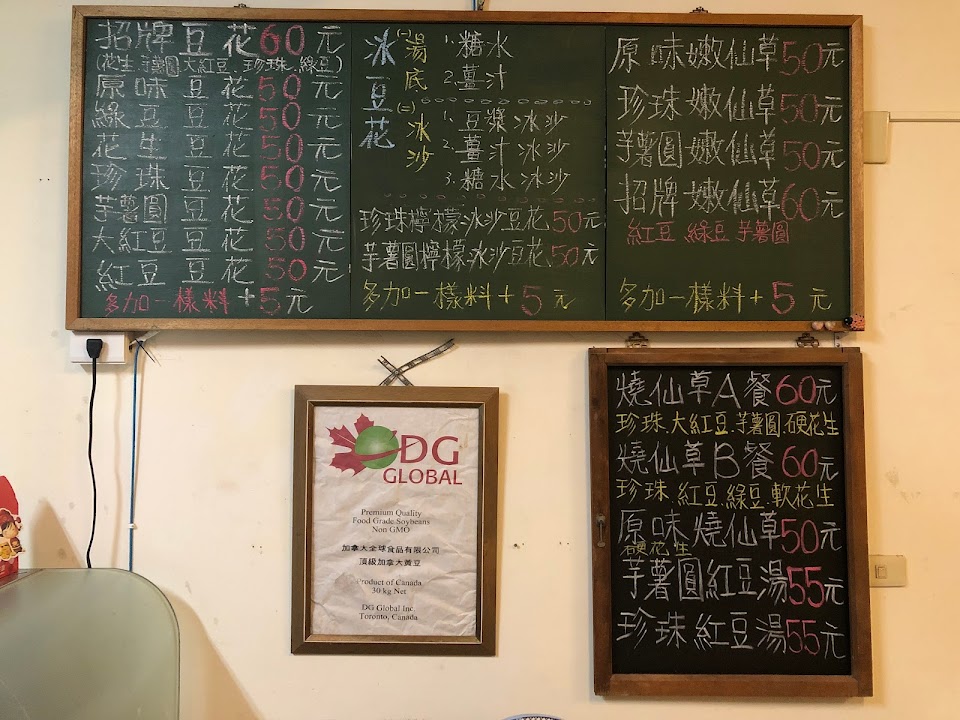 招牌豆花60元
(花生、芋薯圓、大紅豆、珍珠、綠豆)
原味豆花50元
綠豆豆花50元
花生豆花50元
珍珠豆花50元
芋薯圓豆花50元
大紅豆豆花50元
紅豆豆花50元
多加一樣料+5元
冰豆花
(一)湯底
1.糖水
2.薑汁
(二)冰沙
1.豆漿冰沙
2.薑汁冰沙
3.糖水冰沙
珍珠檸檬冰沙豆花50元
芋薯圓檸檬冰沙豆花50元
多加一樣料+5元
原味嫩仙草50元
珍珠嫩仙草50元
芋薯圓嫩仙草50元
招牌嫩仙草60元
紅豆、綠豆、芋薯圓
多加一樣料+5元
DG
GLOBAL
Premium Quality
Food Grade Soybeans
Non GMO
加拿大全球食品有限公司
頂級加拿大黃豆
Product of Canada
30 kg Net
DG Global Inc.
Toronto, Canada
燒仙草A餐60元
珍珠、大紅豆、芋薯圓、硬花生
燒仙草B餐60元
珍珠、紅豆、綠豆、軟花生
原味燒仙草50元
硬花生
芋薯圓紅豆湯55元
珍珠紅豆湯55元